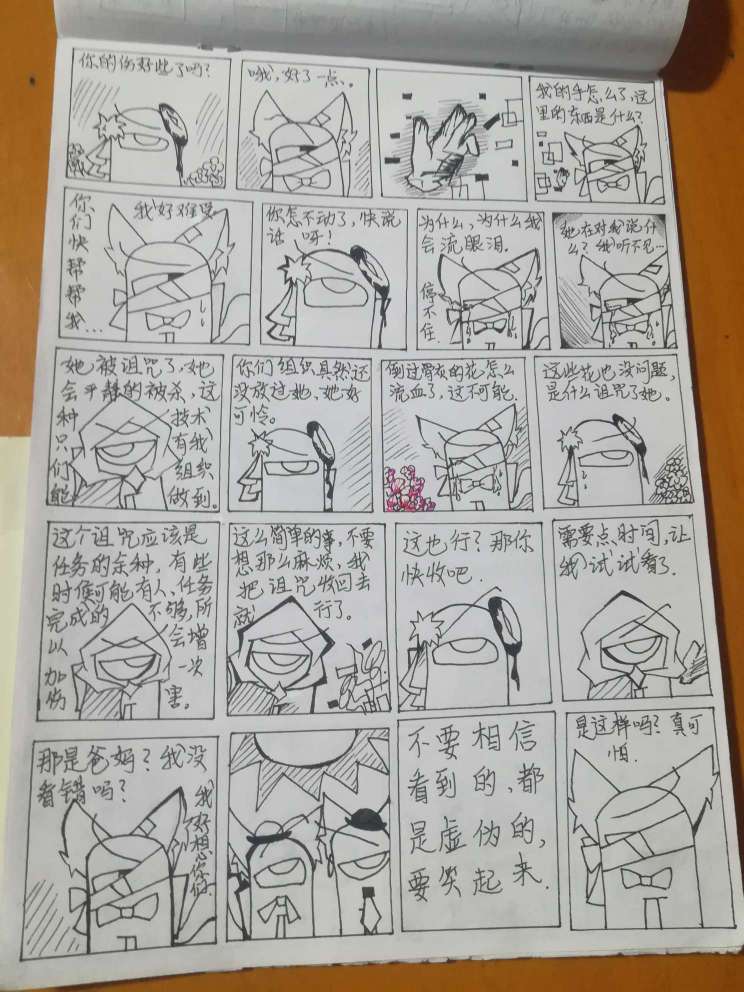 你的伤好些了吗?
哦,好了一点、。
我的手怎么了,这
里的东西是什么?
你们快帮帮我...
我好难受
你怎不动了,快说
话呀!
为什么,为什么我
会流眼泪.
停不住
她在对我说什
么?我听不见…
她被诅咒了,她
会平静的被杀,这
种 技术
只 有我
们 组织
能 做到.
你们组织具然还
没放过她,她好
可怜。
倒过骨灰的花,怎么
流血了,这不可能.
这些花也没问题,
是什么诅咒了她。
这个诅咒应该是
任务的余种,有些
时候可能有人,任务
完成的 不够,所
以 会增
加 一次
伤 害。
这么简单的事,不要
想那么麻烦,我
把诅咒收回去
就 行了。
这也行?那你
快收吧.
需要点时间,让
我试试看了.
那是爸妈?我没
看错吗?
我好想你们
不要相信
看到的,都
是虚伪的,
要笑起来.
是这样吗?真可
怕.